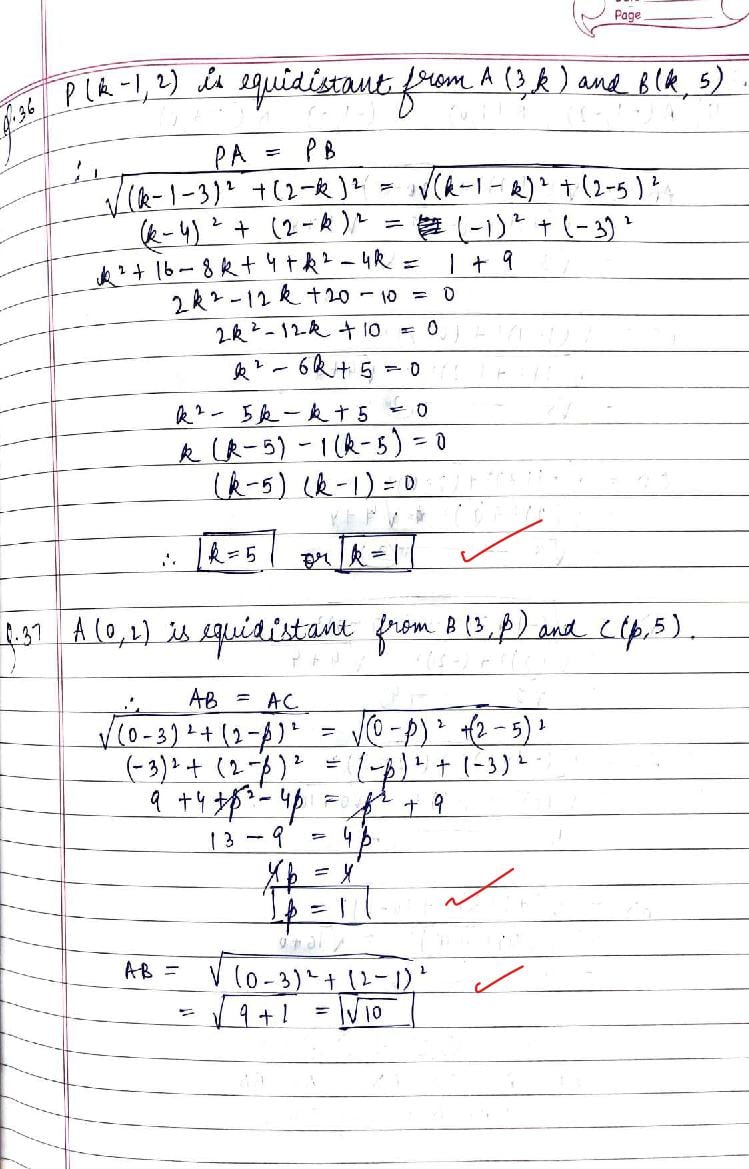 Page
Q.36 P(k-1, 2) is equidistant from A (3, k) and B(k, 5).
∴ PA = PB
√(k-1-3)² + (2-k)² = √(k-1-k)² + (2-5)²
(k-4)² + (2-k)² = (-1)² + (-3)²
k² + 16 - 8k + 4 + k² - 4k = 1 + 9
2k² - 12k + 20 - 10 = 0
2k² - 12k + 10 = 0
k² - 6k + 5 = 0
k² - 5k - k + 5 = 0
k (k-5) - 1(k-5) = 0
(k-5) (k-1) = 0
∴ k=5 or k=1
Q.37 A(0,2) is equidistant from B(3, p) and C(p, 5).
∴ AB = AC
√(0-3)² + (2-p)² = √(0-p)² + (2-5)²
(-3)² + (2-p)² = (-p)² + (-3)²
9 + 4 + p² - 4p = p² + 9
13 - 9 = 4p
4p = 4
p = 1
AB = √(0-3)² + (2-1)²
= √9+1 = √10